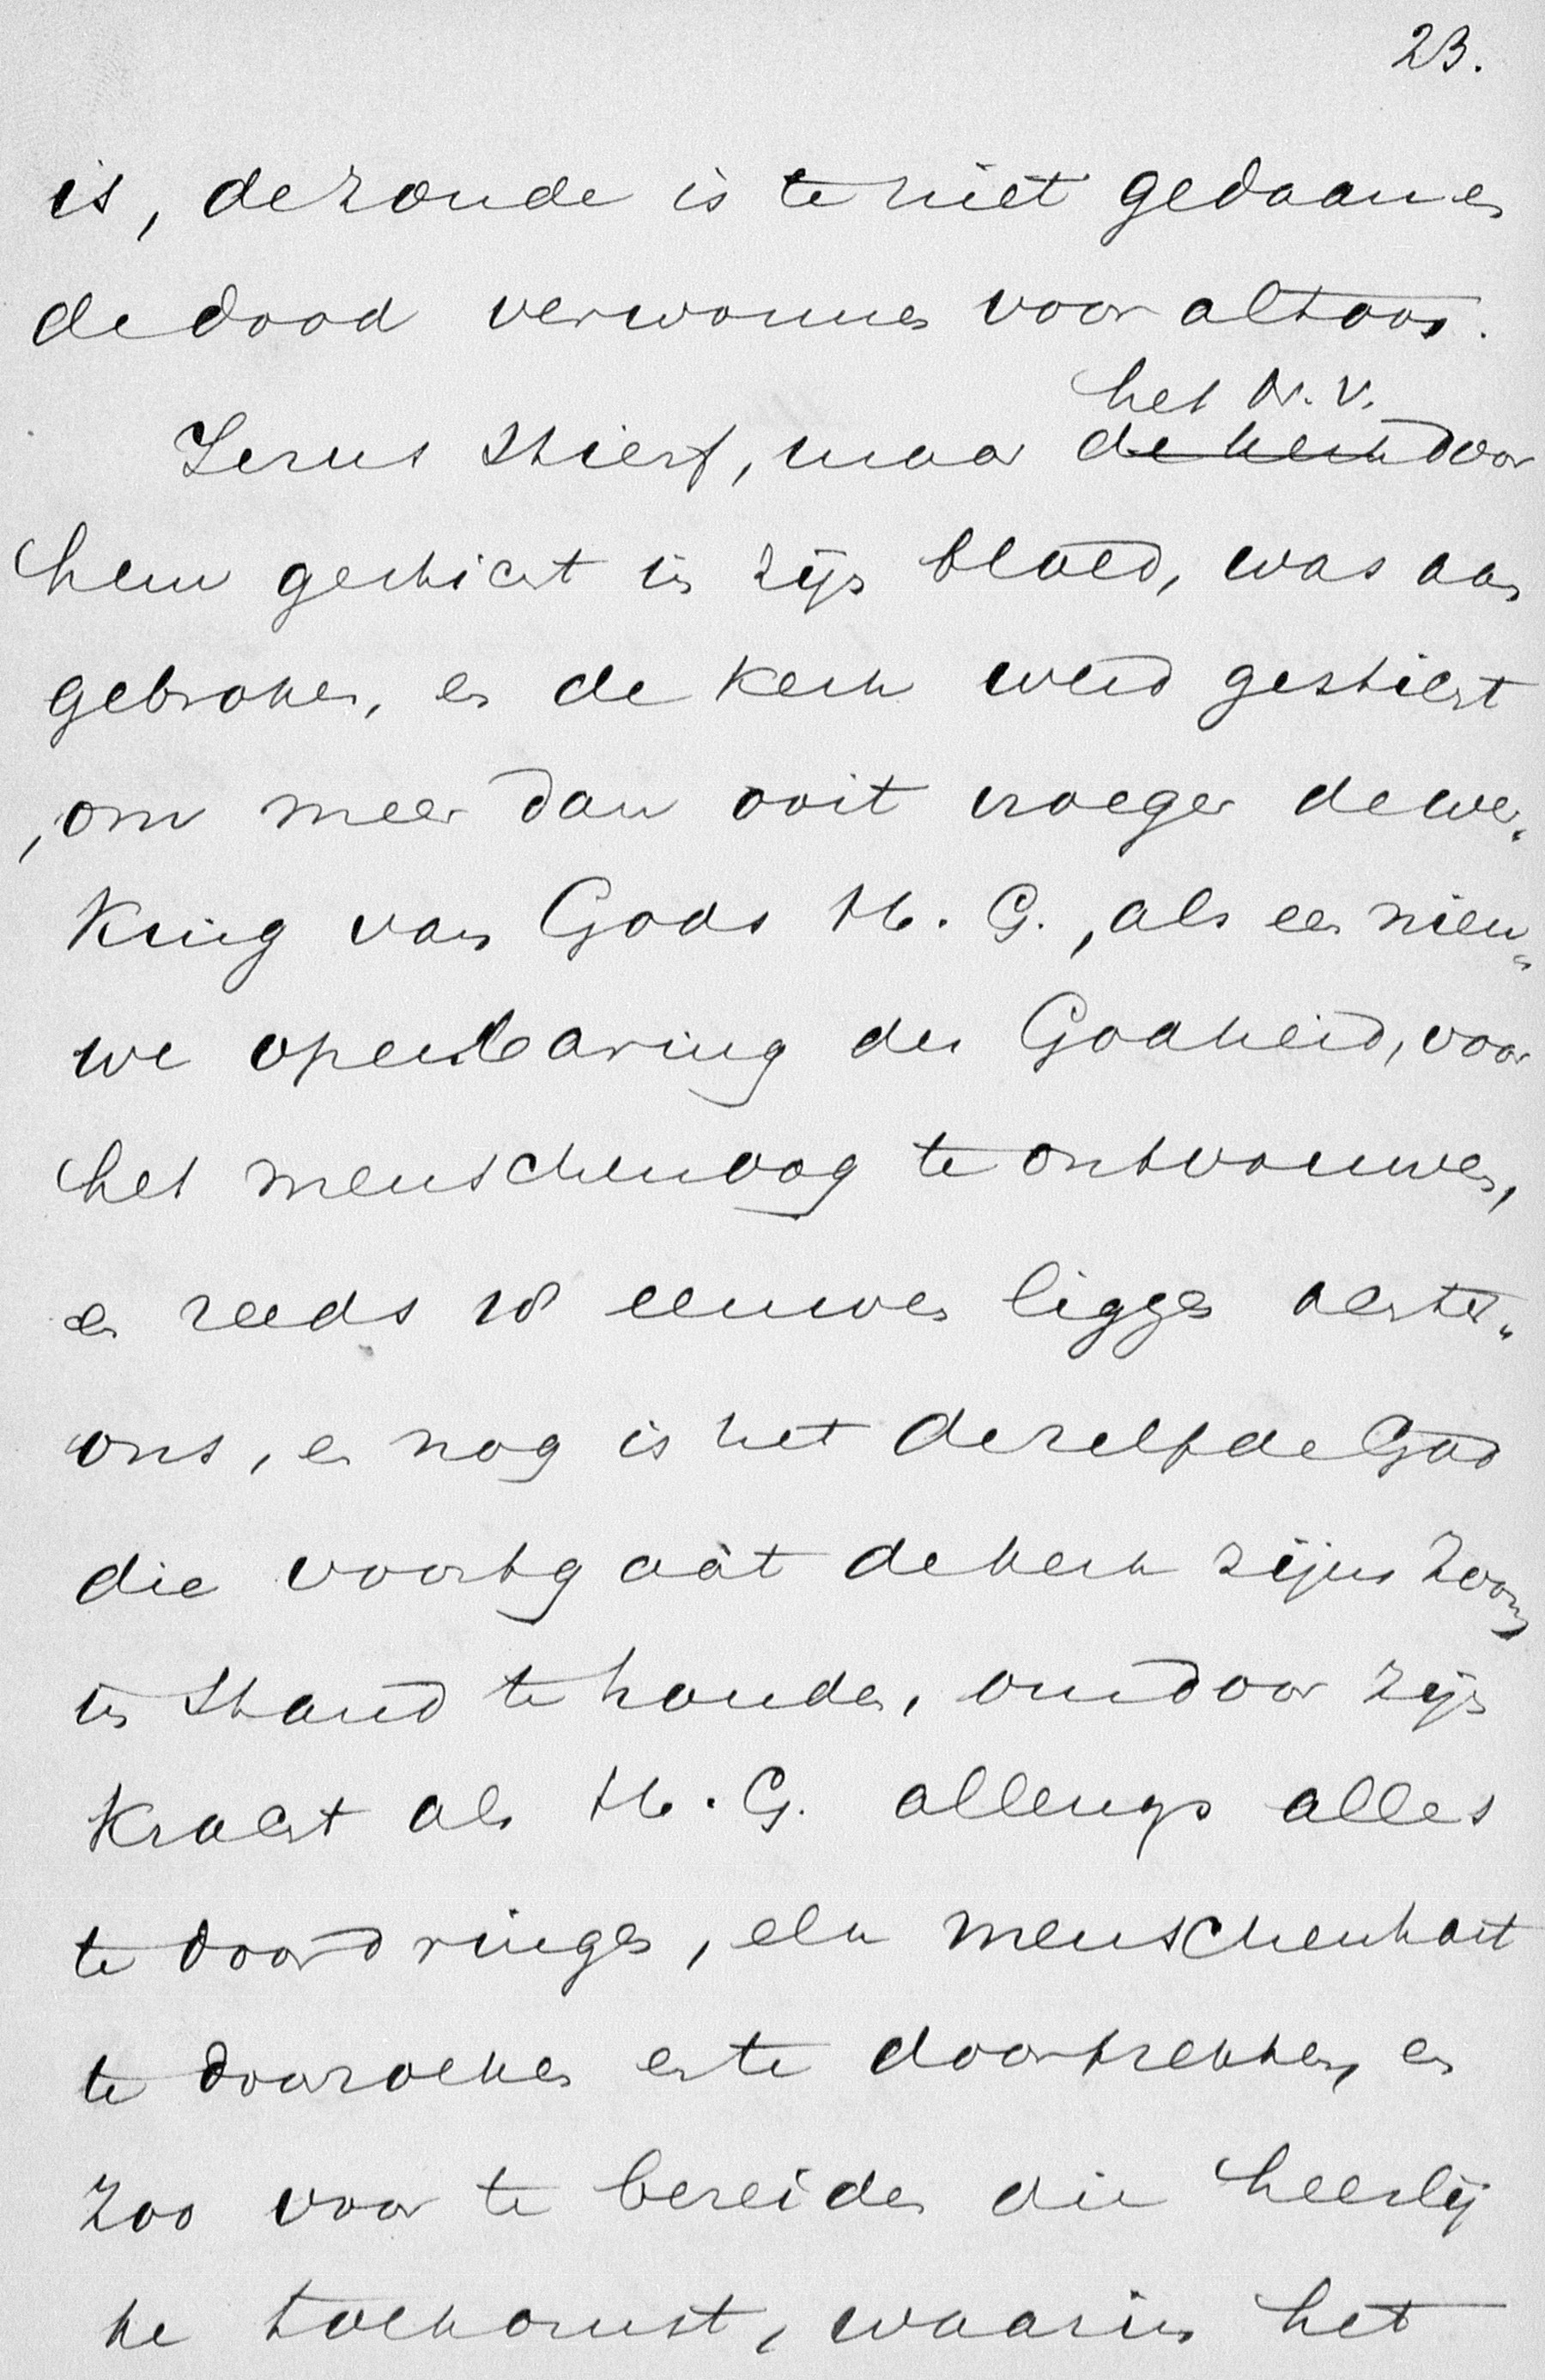 23.
is, de zonde is te niet gedaan en
de dood verwonnen voor altoos.
het N. V.
Jezus stierf, maar de kerk door
hem gesticht in zijn bloed, was aan
gebroken, en de kerk werd gesticht
, om meer dan ooit vroeger de wer-
king van Gods H. G., als een nieu=
we openbaring der Godheid, voor
het menschenoog te ontvouwen,
en reeds 18 eeuwen liggen achter
ons, en nog is het dezelfde God
die voortgaat de kerk zijns Zoons
in stand te houden, om door zijn
kracht als H. G. allengs alles
te doordringen, elk menschenhart
te doorzoeken en te doortrekken, en
zoo voor te bereiden die heerlij
ke toekomst, waarin het